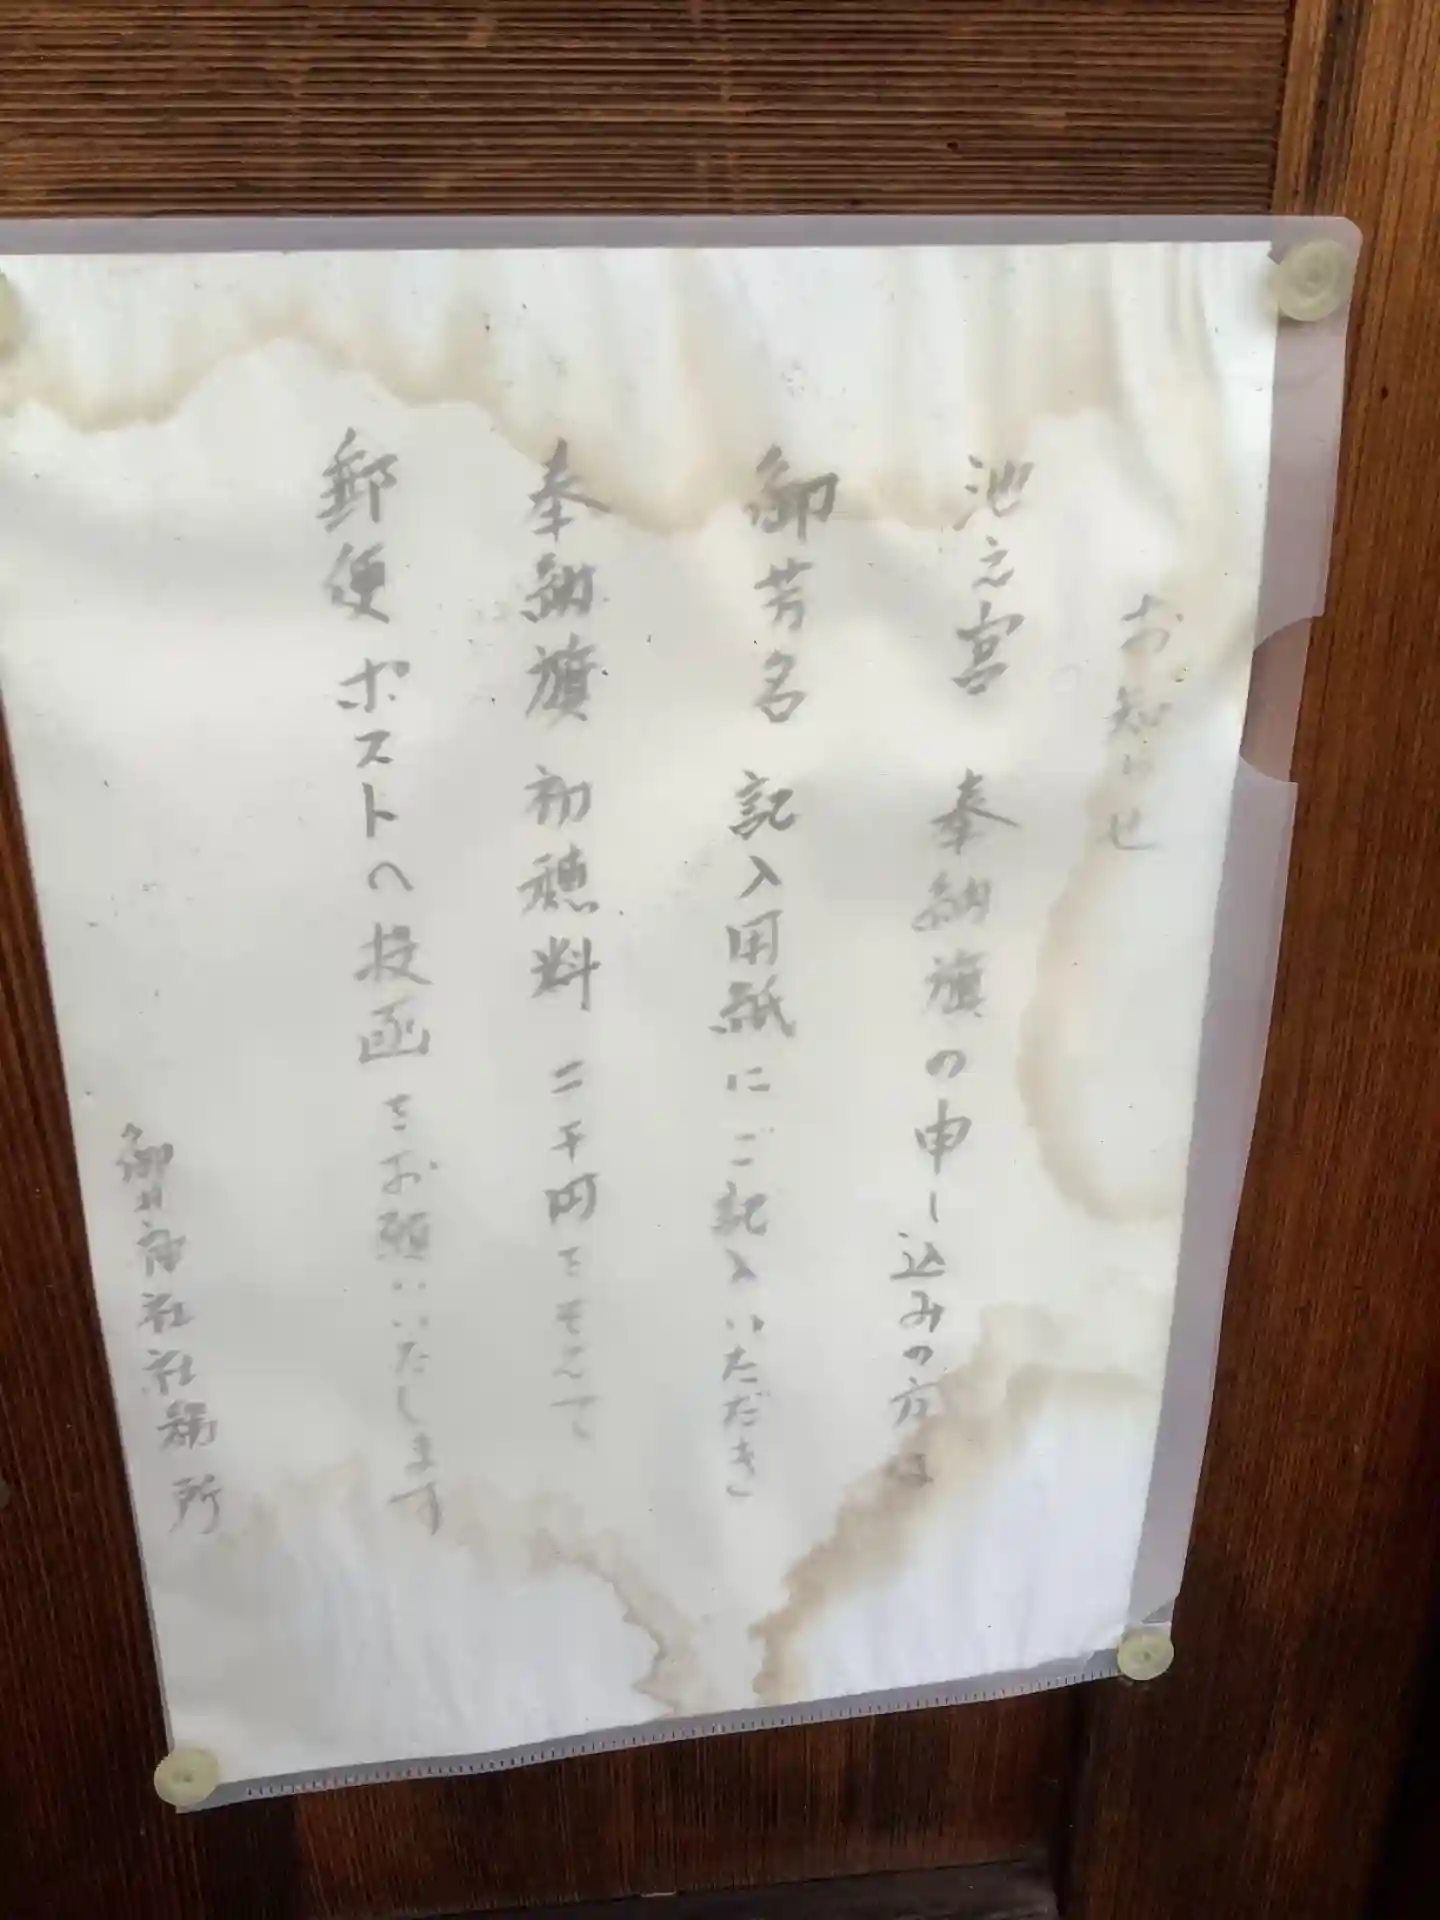 お知らせ
池之宮 奉納旗の申し込みの方は
御芳名 記入用紙にご記入いただき
奉納旗 初穂料 二千円をそえて
郵便ポストへ投函をお願いいたします
御井神社社務所